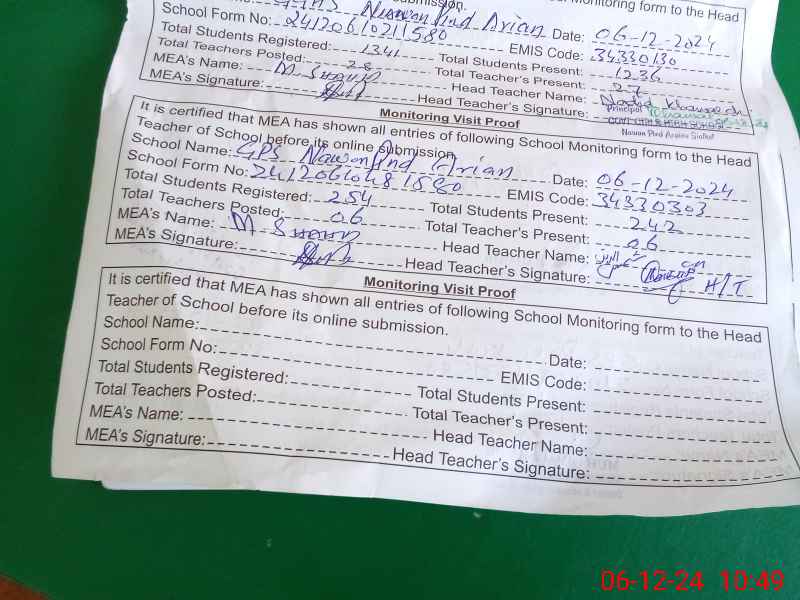 Monitoring form to the Head
School Form No: 24120610211580 Date: 06-12-2024
Total Students Registered: 1341 EMIS Code: 34330130
Total Teachers Posted: 28 Total Students Present: 1236
MEA's Name: Total Teacher's Present: 27
MEA's Signature: Head Teacher Name:
Head Teacher's Signature: Principal
Monitoring Visit Proof
It is certified that MEA has shown all entries of following School Monitoring form to the Head
Teacher of School before its online submission.
School Name: GPS Nawan Pind Arian Date: 06-12-2024
School Form No: EMIS Code: 34330303
Total Students Registered: 254 Total Students Present: 242
Total Teachers Posted: 06 Total Teacher's Present: 06
MEA's Name: Head Teacher Name:
MEA's Signature: Head Teacher's Signature: H/T
Monitoring Visit Proof
It is certified that MEA has shown all entries of following School Monitoring form to the Head
Teacher of School before its online submission.
School Name: Date:
School Form No: EMIS Code:
Total Students Registered: Total Students Present:
Total Teachers Posted: Total Teacher's Present:
MEA's Name: Head Teacher Name:
MEA's Signature: Head Teacher's Signature:
06-12-24 10:49